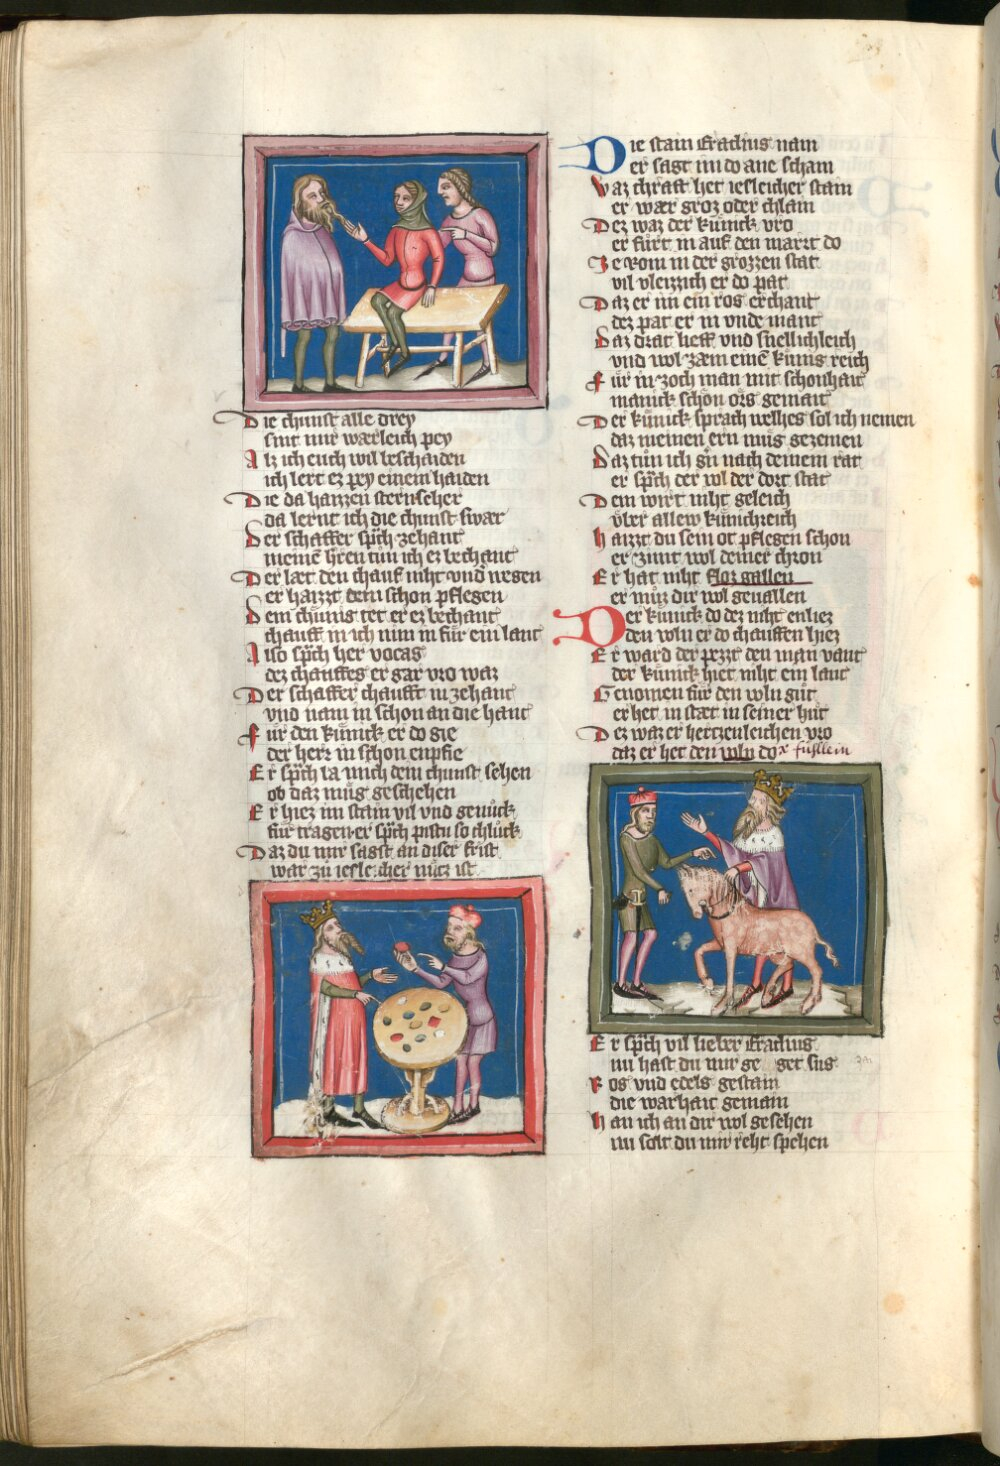 Die chunst alle drey
sint mir wærleich pey
Alz ich euch wil beschaiden
ich lert ez pey einem haiden
Die da haizzen sternseher
da lernt ich die chunst swær
Der schaffer sp̄ch zehant
meinē h̓ren tůn ich ez bechant
Der læt den chauf niht vnd̓wegen
er haizzt dein schon pflegen
Dem chůnig tet er ez bechant
chauff in ich nim in fůr ein lant
Also sp̄ch her vocas
dez chauffes er gar vro waz
Der schaffer chaufft in zehant
vnd nam in schon an die hant
Fůr den kůnick er do gie
der herr in schon enpfie
Er sp̄ch la mich dein chunst sehen
ob daz můg geschehen
Er hiez im stain vil vnd genůck
fůr tragen er sp̄ch pistu so chlůck
Daz du mir sagst an diser frist
war zů iesleicher nůcz ist
Die stain Eraclius nam
er sagt im do ane scham
Waz chraft het iesleicher stain
er wær groz oder chlain
Dez waz der kůnick vro
er fůrt in auf den marct do
Ze rom in der grozzen stat
vil vleizzich er do pat
Daz er im ein ros erchant
dez pat er in vnde mant
Daz drat lieff vnd snellichleich
vnd wol zæm einē kůnig reich
Fůr in zoch man mit schonhait
manick schön ors gemait
Der kůnick sprach welhes sol ich nemen
daz meinen ern můg gezemen
Daz tůn ich gn̄ nach deinem rat
er sp̄ch der vol der dort stat
Dem wirt niht geleich
vber allew kůnichreich
Haizzt du sein ot pflegen schon
er zimt wol deiner chron
Er hat niht flozgallen
er můz dir wol geuallen
Der kůnick do dez niht enliez
den voln er do chauffen hiez
Er ward der pezzt den man vant
der kůnick hiet niht ein lant
Genomen fůr den voln gůt
er het in stæt in seiner hůt
Dez waz er hertzenleichen vro
daz er het den voln do x fůsllein
Er sp̄ch vil lieber Eraclius
nu hast du mir ge get sus
Ros vnd edels gestain
die warhait gemain
Han ich an dir wol gesehen
nu solt du mir reht spehen